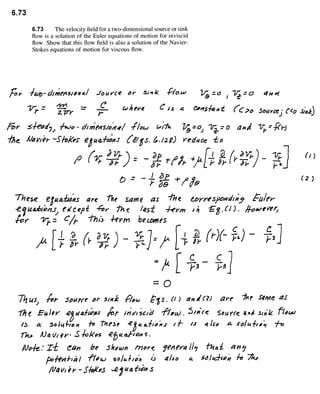 6.73
6.73 The velocity field for a two-dimensional source or sink
flow is a solution of the Euler equations of motion for inviscid
flow. Show that this flow field is also a solution of the Navier-
Stokes equations of motion for viscous flow.
For two-dimensional source or sink flow v_θ = 0, v_z = 0 and
v_r = m/2πr = C/r where C is a constant (C>0 source; C<0 sink)
For steady, two-dimensional flow with v_θ=0, v_z=0 and v_r=f(r)
the Navier-Stokes equations (Eqs. 6.128) reduce to
ρ (v_r ∂v_r/∂r) = - ∂p/∂r + ρg_r + μ[1/r ∂/∂r (r ∂v_r/∂r) - v_r/r²] (1)
0 = - 1/r ∂p/∂θ + ρg_θ (2)
These equations are the same as the corresponding Euler
equations, except for the last term in Eq.(1). However,
for v_r = C/r this term becomes
μ[1/r ∂/∂r (r ∂v_r/∂r) - v_r/r²] = μ[1/r ∂/∂r (r)(-C/r²) - C/r³]
= μ[C/r³ - C/r³]
= 0
Thus, for source or sink flow Eqs. (1) and (2) are the same as
the Euler equations for inviscid flow. Since source and sink flow
is a solution to these equations it is also a solution to
the Navier-Stokes equations.
Note: It can be shown more generally that any
potential flow solution is also a solution to the
Navier-Stokes equations